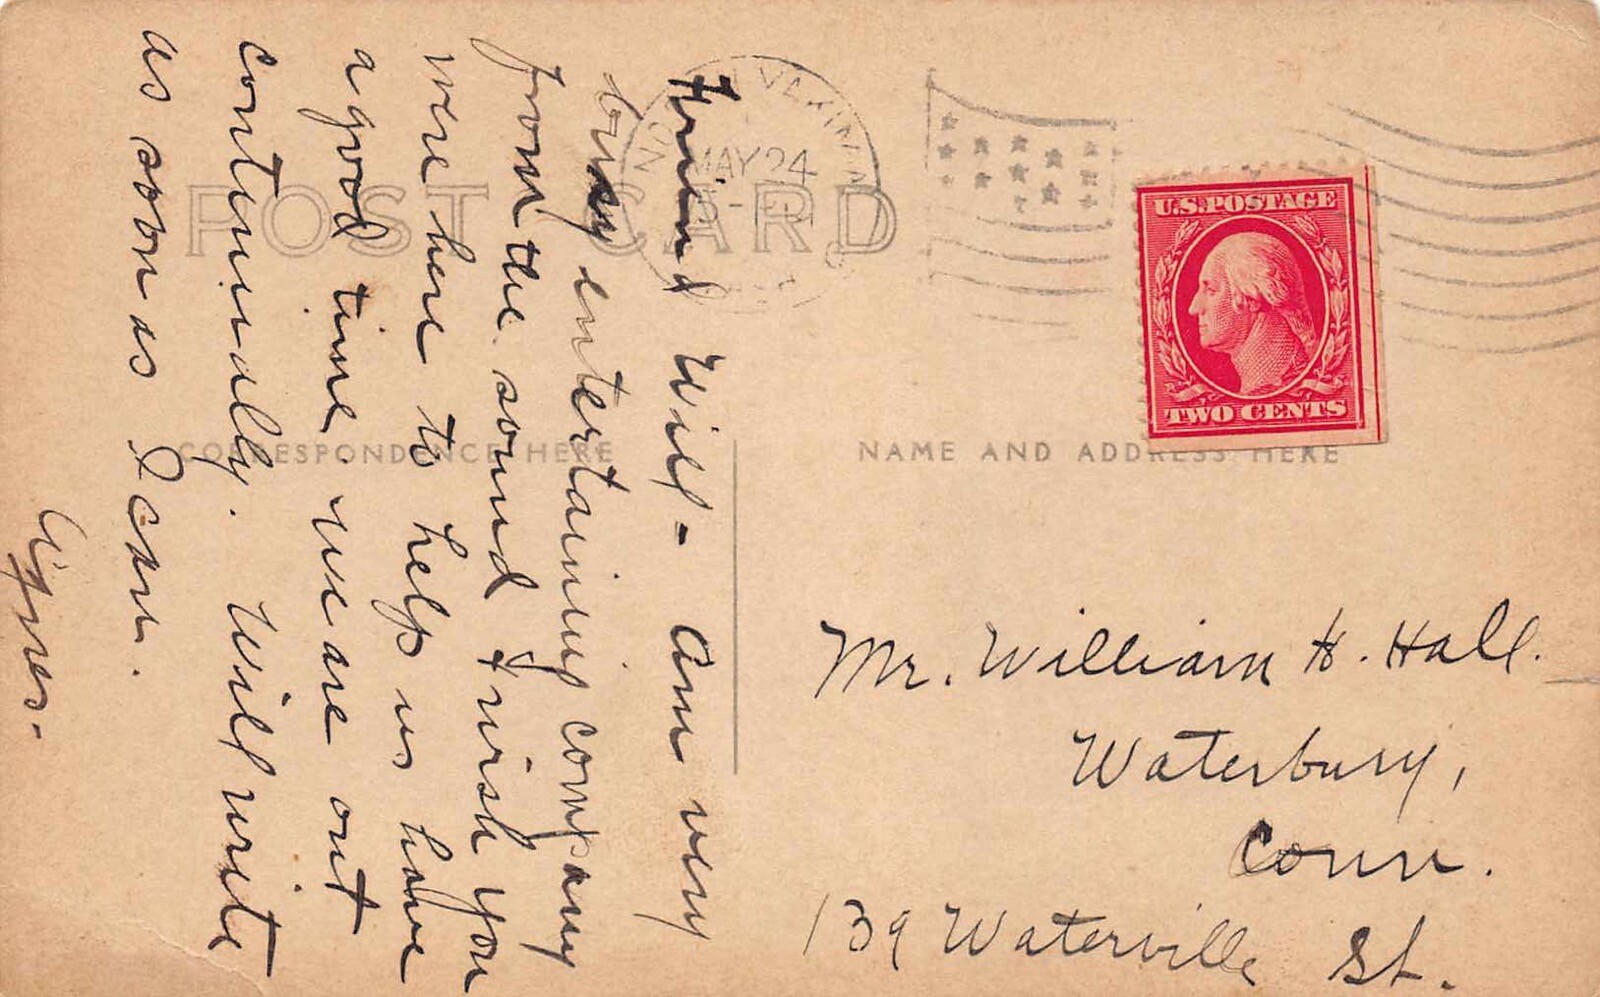 Friend Will - Am very
busy entertaining company
from the sound & wish you
were here to help us have
a good time. We are out
continually. Will write
as soon as I can.
Agnes.
POST CARD
CORRESPONDENCE HERE
NAME AND ADDRESS HERE
NORTH YAKIMA
MAY 24
U.S.POSTAGE
TWO CENTS
Mr. William H. Hall.
Waterbury,
Conn.
139 Waterville St.